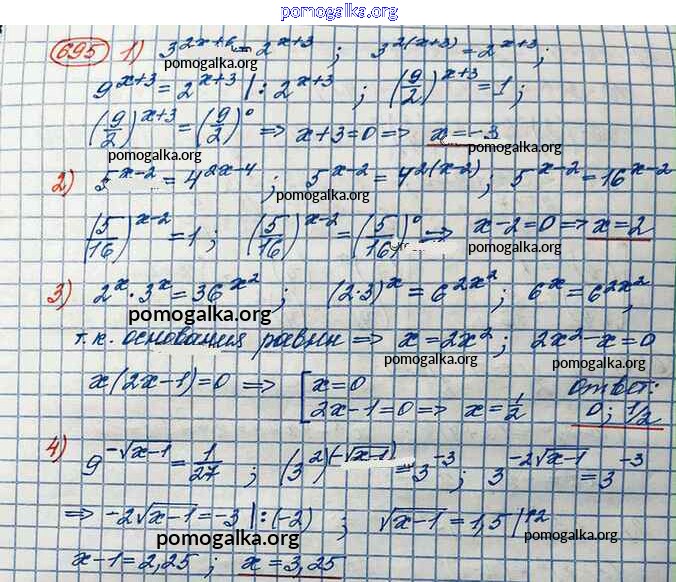 pomogalka.org
695 1) 3^{2x+6} = 2^{x+3} ; 3^{2(x+3)} = 2^{x+3} ;
pomogalka.org
pomogalka.org
9^{x+3} = 2^{x+3} | : 2^{x+3} ; (9/2)^{x+3} = 1 ;
(9/2)^{x+3} = (9/2)^0 => x+3=0 => x=-3
pomogalka.org
pomogalka.org
2) 5^{x-2} = 4^{2x-4} ; 5^{x-2} = 4^{2(x-2)} ; 5^{x-2} = 16^{x-2}
pomogalka.org
(5/16)^{x-2} = 1 ; (5/16)^{x-2} = (5/16)^0 => x-2=0 => x=2
pomogalka.org
3) 2^x · 3^x = 36^{x^2} ; (2·3)^x = 6^{2x^2} ; 6^x = 6^{2x^2} ,
pomogalka.org
pomogalka.org
т.к. основания равны => x = 2x^2 ; 2x^2 - x = 0
pomogalka.org
pomogalka.org
x(2x-1)=0 => [ x=0 ответ:
2x-1=0 => x=1/2 0; 1/2
4) 9^{-√x-1} = 1/27 ; (3^2)^{(-√x-1)} = 3^{-3} ; 3^{-2√x-1} = 3^{-3}
pomogalka.org
pomogalka.org
=> -2√x-1 = -3 | : (-2) ; √x-1 = 1,5 |^2
pomogalka.org
pomogalka.org
x-1 = 2,25 ; x = 3,25